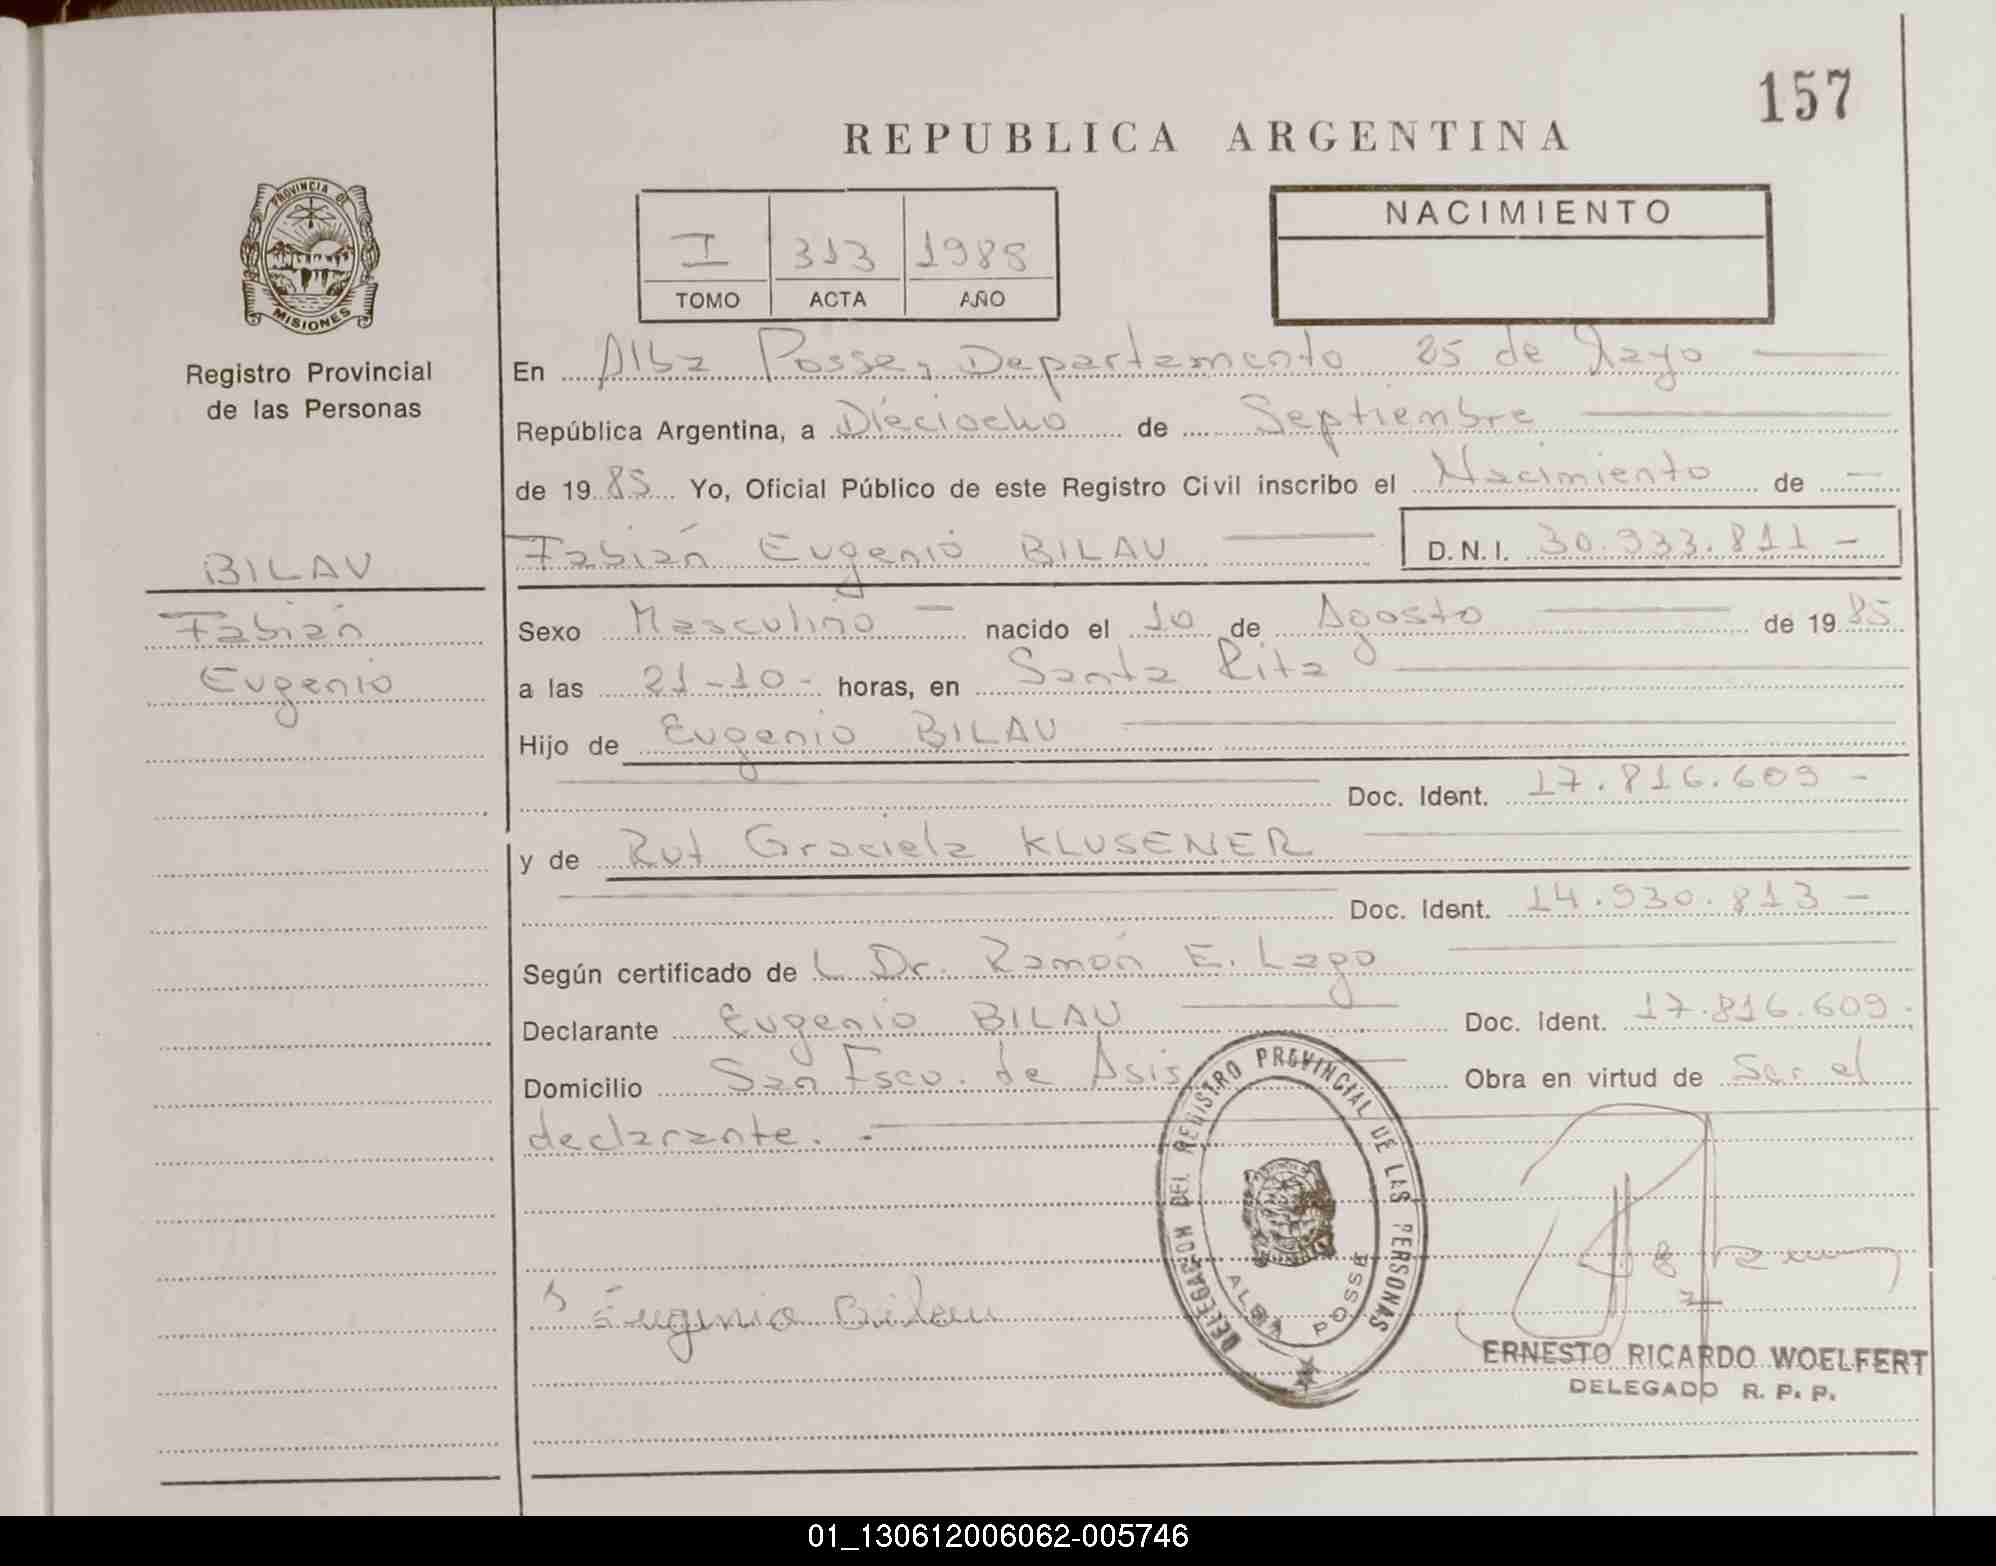 157
REPUBLICA ARGENTINA
PROVINCIA DE
MISIONES
Registro Provincial
de las Personas
I 313 1985
TOMO ACTA AÑO
NACIMIENTO
En Alba Posse, Departamento 25 de Mayo
República Argentina, a Dieciocho de Septiembre
de 19 85 Yo, Oficial Público de este Registro Civil inscribo el Nacimiento de
Fabián Eugenio BILAU D.N.I. 30.933.811 -
BILAU
Fabián
Eugenio
Sexo Masculino nacido el 10 de Agosto de 19 85
a las 21-10- horas, en Santa Rita
Hijo de Eugenio BILAU
Doc. Ident. 17.816.609 -
y de Rut Graciela KLUSENER
Doc. Ident. 14.930.813 -
Según certificado de L Dr. Ramón E. Lago
Declarante Eugenio BILAU Doc. Ident. 17.816.609.
Domicilio San Fsco. de Asis Obra en virtud de Ser el
declarante. -
Eugenio Bilau
DELEGACION DEL REGISTRO PROVINCIAL DE LAS PERSONAS
ALBA POSSE
ERNESTO RICARDO WOELFERT
DELEGADO R. P. P.
01_130612006062-005746